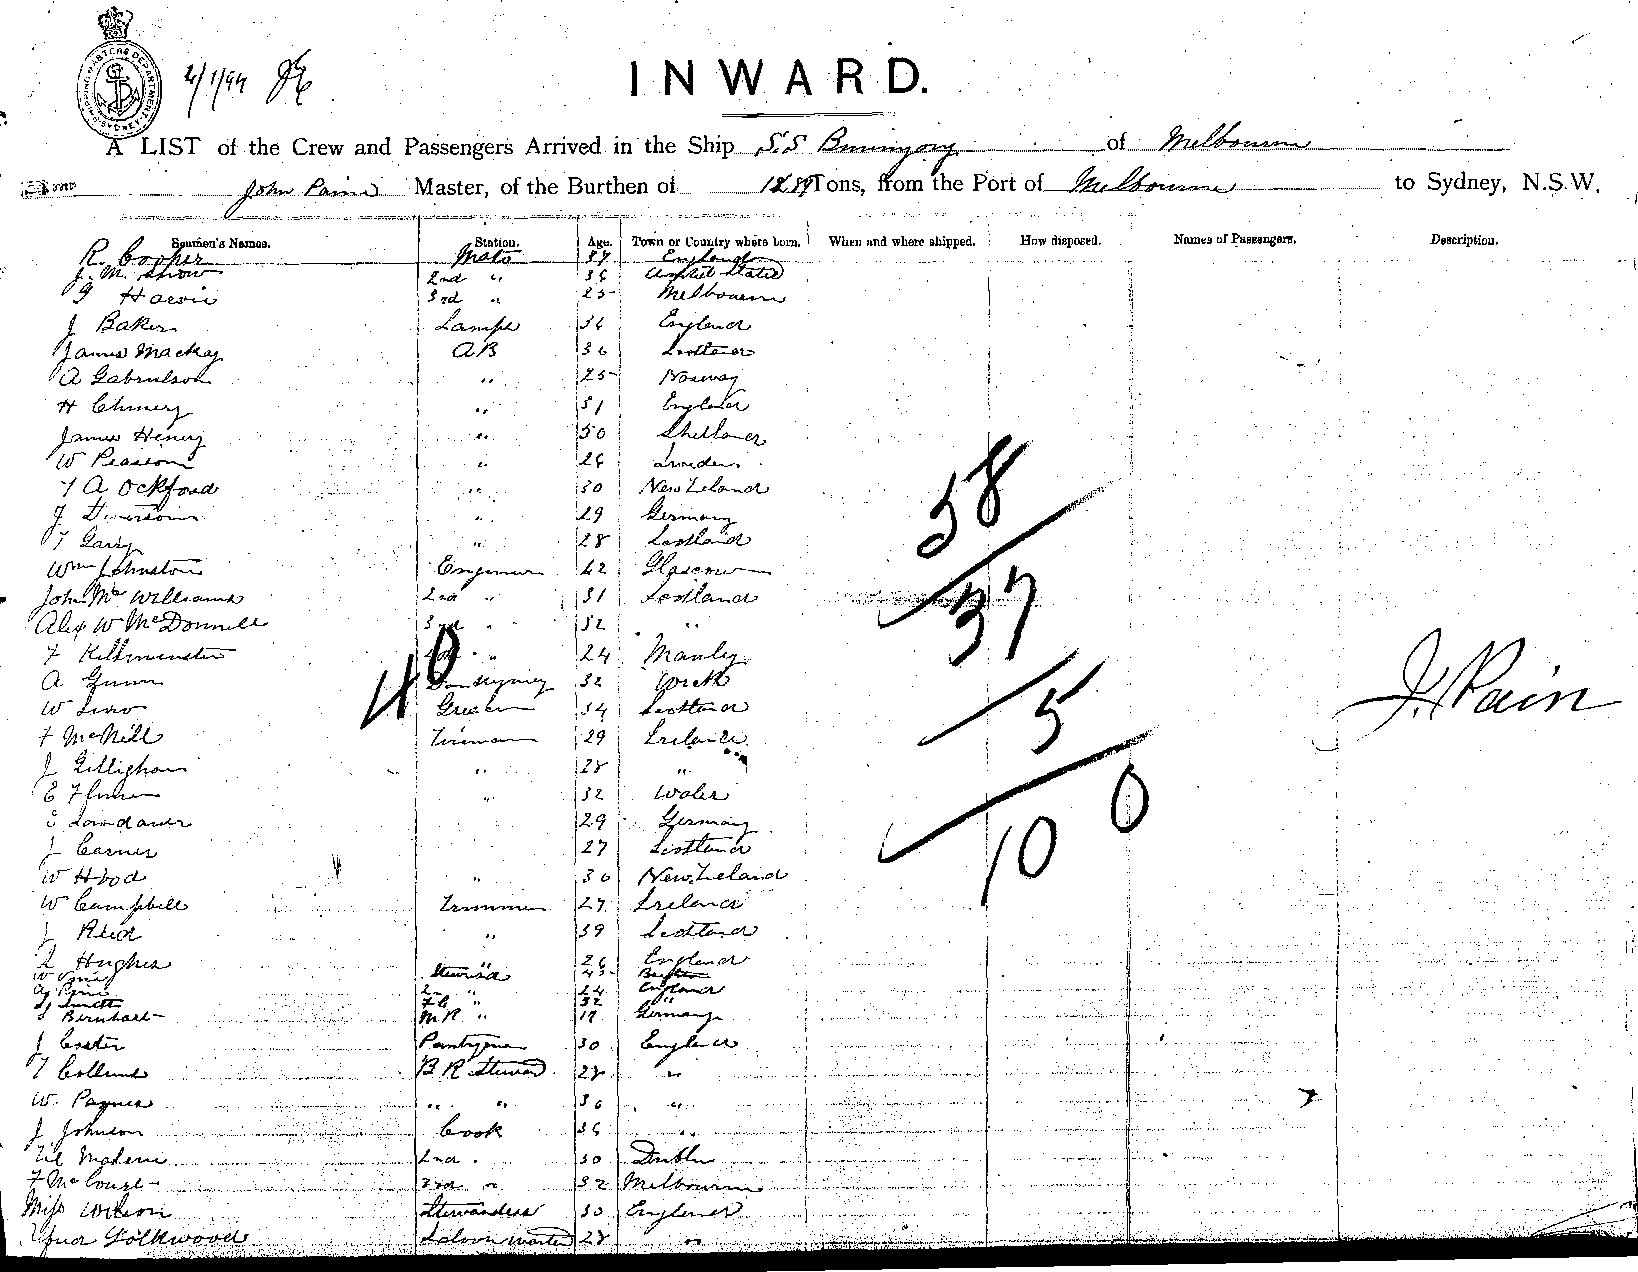 SHIPPING MASTERS DEPARTMENT SYDNEY
2/1/94
INWARD.
A LIST of the Crew and Passengers Arrived in the Ship S.S Buninyong of Melbourne
John Pain Master, of the Burthen of Tons, from the Port of Melbourne to Sydney, N.S.W.
Seamen's Names. Station. Age. Town or Country where born. When and where shipped. How disposed. Names of Passengers. Description.
R. Cooper Mate 37 England
J. M. Snow 2nd " 36 United States
Harvie 3rd " 25 Melbourne
J Baker Lamps 36 England
James Mackay AB 36 Scotland
A Gabrielson " 25 Norway
H Chinery " 31 England
James Henry " 50 Shetland
W Pearson " 26 Sweden
A Ockford " 30 New Zeland
J " 29 Germany
T Garry " 28 Scotland
Wm Johnston Engineer 42 Glascow
John McWilliams 2nd " 31 Scotland
Alex W McDonnell 3rd " 32 "
F Kilminster " 24 Manly
A Gunn Donkeyman 32 Cork
W Greaser 34 Scotland
F McNeill Fireman 29 Ireland
J Gillighan " 28 "
E " 32 Wales
Landauer 29 Germany
J 27 Scotland
W Hood " 30 New Zeland
W Campbell Trimmer 27 Ireland
J Reid " 39 Scotland
Hughes " 26 England
W Steward 45
2 " 24 England
F C " 32 "
Bernhart M R " 19 Germany
J Coster Pantryman 30 England
T Collins B R Steward 28 "
W. Paynes " " 36 "
J Johnson Cook 36 "
2nd 30 Dublin
F 3rd " 32 Melbourne
Miss Wilson Stewardess 30 England
Lockwood Saloon Waiter 28 "
40
58
37
5
100
J. Pain